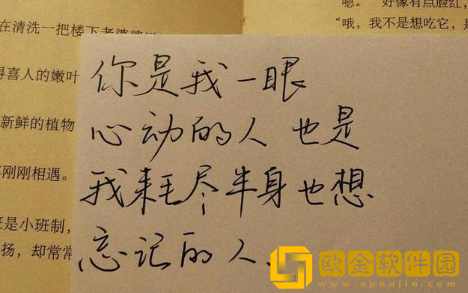 在清洗一把楼下老婆婆
得喜人的嫩叶
新鲜的植物
刚刚相遇。
是小班制，
扬，却常常
嗯。”好像有点脸红，
“哦，我不是想吃它，是
你是我一眼
心动的人 也是
我耗尽半身也想
忘记的人.
欧金软件园
www.apoujin.com